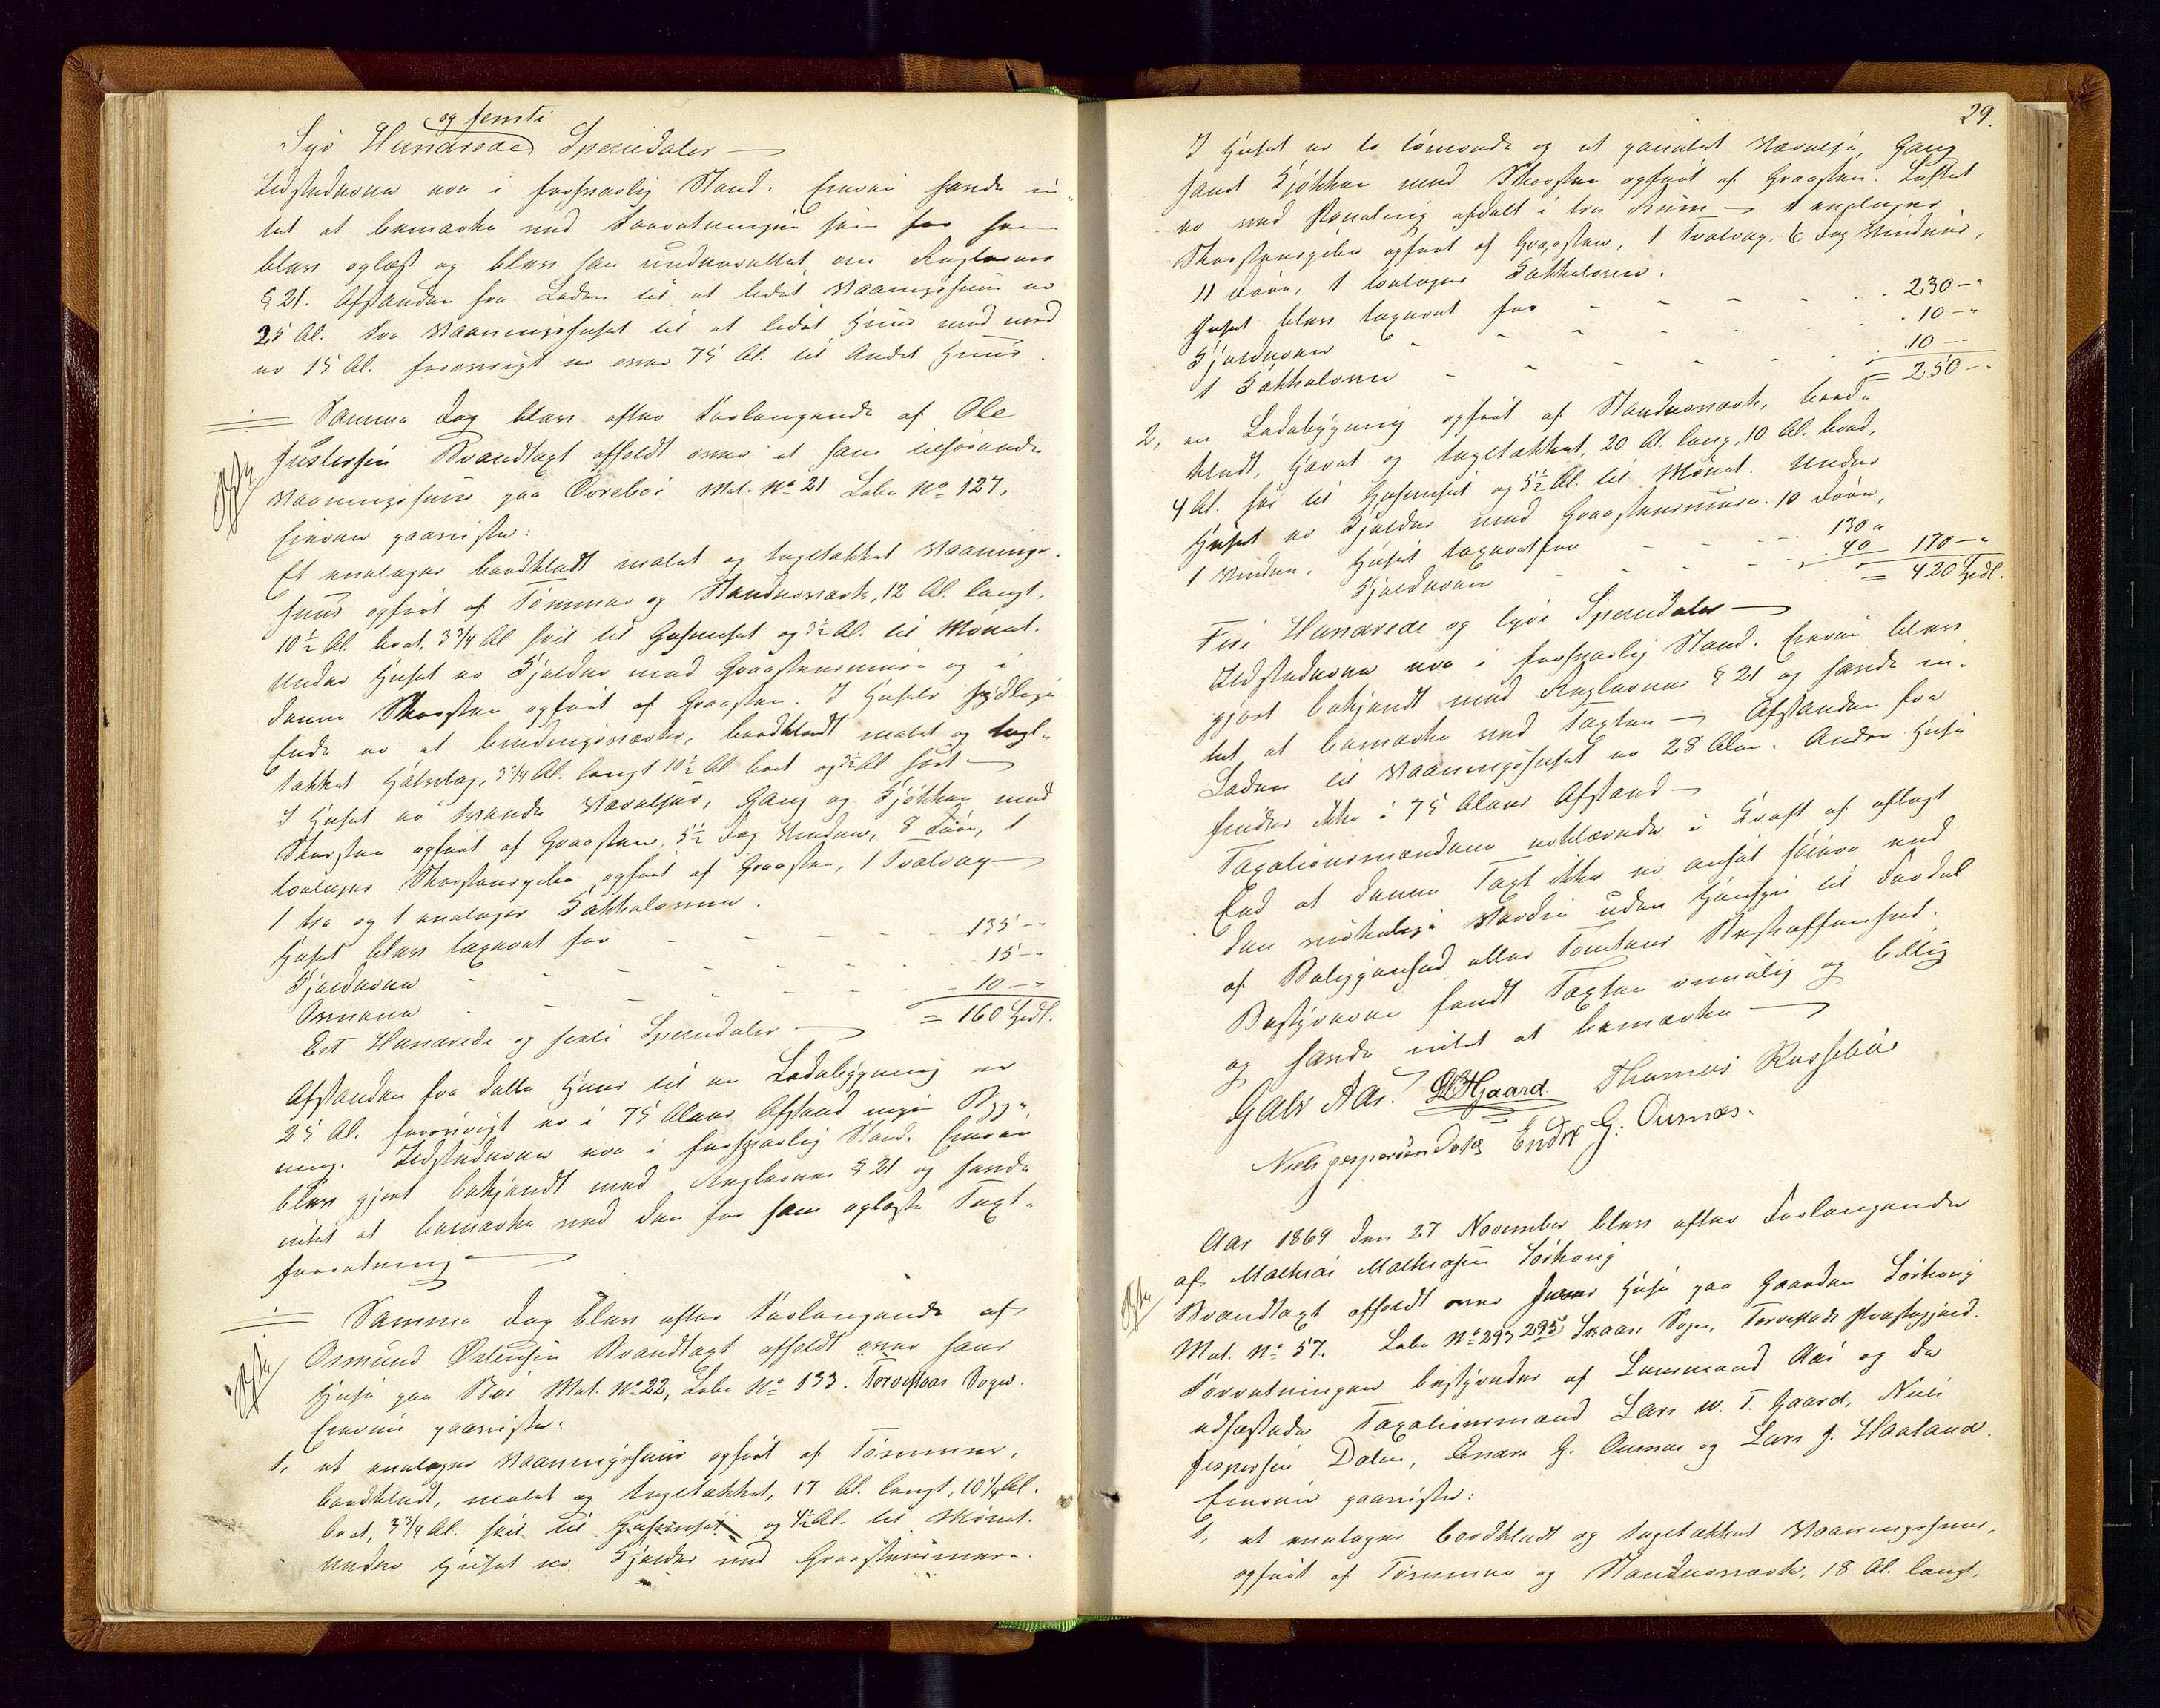 og femti
Syv Hundrede Speciedaler —
Ildstederne var i forsvarlig Stand. Eieren havde in-
tet at bemærke ved Forretningen som for ham
blev oplæst og blev han underrettet om Reglernes
§ 21. Afstanden fra Laden til et lidet Vaaningshuus er
25 Al. fra Vaaningshuset til et lidet Huus
er 15 Al. forøvrigt er over 75 Al. til Andet Huus.
Samme Dag blev efter Forlangende af Ole
Brandtaxt afholdt over et ham tilhørende
Vaaningshuus paa Øvrebø Mat. No 21 Løbe No 127.
Eieren paaviste:
Et enetages bordklædt malet og tagstækket Vaanings-
huus opført af Tømmer og Standværk, 12 Al. langt,
10½ Al. bredt, 3¾ Al høit til Gesimset og 3½ Al. til Mønet.
Under Huset er Kjelder med Graasteensmuure og i
denne Skorsten opført af Graasten. I Husets sydlige
Ende er et bindingsværks, bordklædt malet og tagst-
tækket Halvtag, 3¾ Al. langt 10½ Al bredt og 3½ Al høit —
I Huset er Værelser, Gang og Kjøkken med
Skorsten opført af Graasten, 5½ Fag Vinduer, 8 Døre, 1
toetages Skorstenspibe opført af Graasten, 1 Trætrap —
1 tre og 1 enetages Kakkelovne.
Huset blev taxeret for 135 "
Kjelderen 15 "
Ovnene 10 "
Et Hundrede og sexti Speciedaler — = 160 Spdl.
Afstanden fra dette Huus til en Ladebygning er
25 Al. forøvrigt er i 75 Alens Afstand ingen Byg-
ning. Ildstederne var i forsvarlig Stand. Eieren
blev gjort bekjendt med Reglernes § 21 og havde
intet at bemærke ved den for ham oplæste Taxt-
forretning —
Samme Dag blev efter Forlangende af
Osmund Østensen Brandtaxt afholdt over hans
Huse paa Bø Mat. No 22, Løbe No 133. Torvestad Sogn.
Eieren paaviste:
1, et enetages Vaaningshuus opført af Tømmer,
bordklædt, malet og tagstækket, 17 Al. langt, 10¼ Al.
bredt, 3¾ Al. høit til Gesimset og 4½ Al. til Mønet.
Under Huset er Kjelder med Graasteensmuure.
29.
I Huset er to tømrede og et panelet Værelse, Gang
samt Kjøkken med Skorsten opført af Graasten. Loftet
er ved Paneling afdelt i tre Rum — 1 enetages
Skorstenspibe opført af Graasten, 1 Trætrap, 6 Fag Vinduer,
11 Døre, 1 toetages Kakkelovn.
Huset blev taxeret for 230 "
Kjelderen 10 "
1 Kakkelovn 10 "
= 250 "
2, en Ladebygning opført af Standværk, bord-
klædt, tjæret og tagstækket, 20 Al. lang, 10 Al. bred,
4 Al. høi til Gesimset og 5½ Al. til Mønet. Under
Huset er Kjelder med Graasteensmuure. 10 Døre,
1 Vindue. Huset taxeret for 130 "
Kjelderen 40 170 "
= 420 Spdl.
Fire Hundrede og tyve Speciedaler —
Ildstederne var i forsvarlig Stand. Eieren blev
gjort bekjendt med Reglernes § 21 og havde in-
tet at bemærke ved Taxten — Afstanden fra
Laden til Vaaningshuset er 28 Alen. Andre Huse
findes ikke i 75 Alens Afstand —
Taxationsmændene erklærede i Kraft af aflagt
Eed at denne Taxt ikke er ansat høiere end
den virkelige Værdie uden Hensyn til Fordel
af Beliggenhed eller Tomtens Beskaffenhed.
Bestyreren fandt Taxten ovenlig og billig
og havde intet at bemærke —
Gabr Aas. LWTGaard Thomas Rossebøe
Niels Jespersen Dale Endre G: Ousnes.
Aar 1869 den 27 November blev efter Forlangende
af Mathias Mathiasen Sørhoug
Brandtaxt afholdt over hans Huse paa Gaarden Sørhoug
Mat. No 57. Løbe No 293 295 Skaare Sogn, Torvestads Præstegjæld.
Forretningen bestyredes af Lensmand Aas og de
edfæstede Taxationsmænd Lars W. T. Gaard, Niels
Jespersen Dalen, Endre G. Ousnes og Lars J. Haaland.
Eieren paaviste:
1, et enetages bordklædt og tagstækket Vaaningshuus,
opført af Tømmer og Standværk, 18 Al. langt,